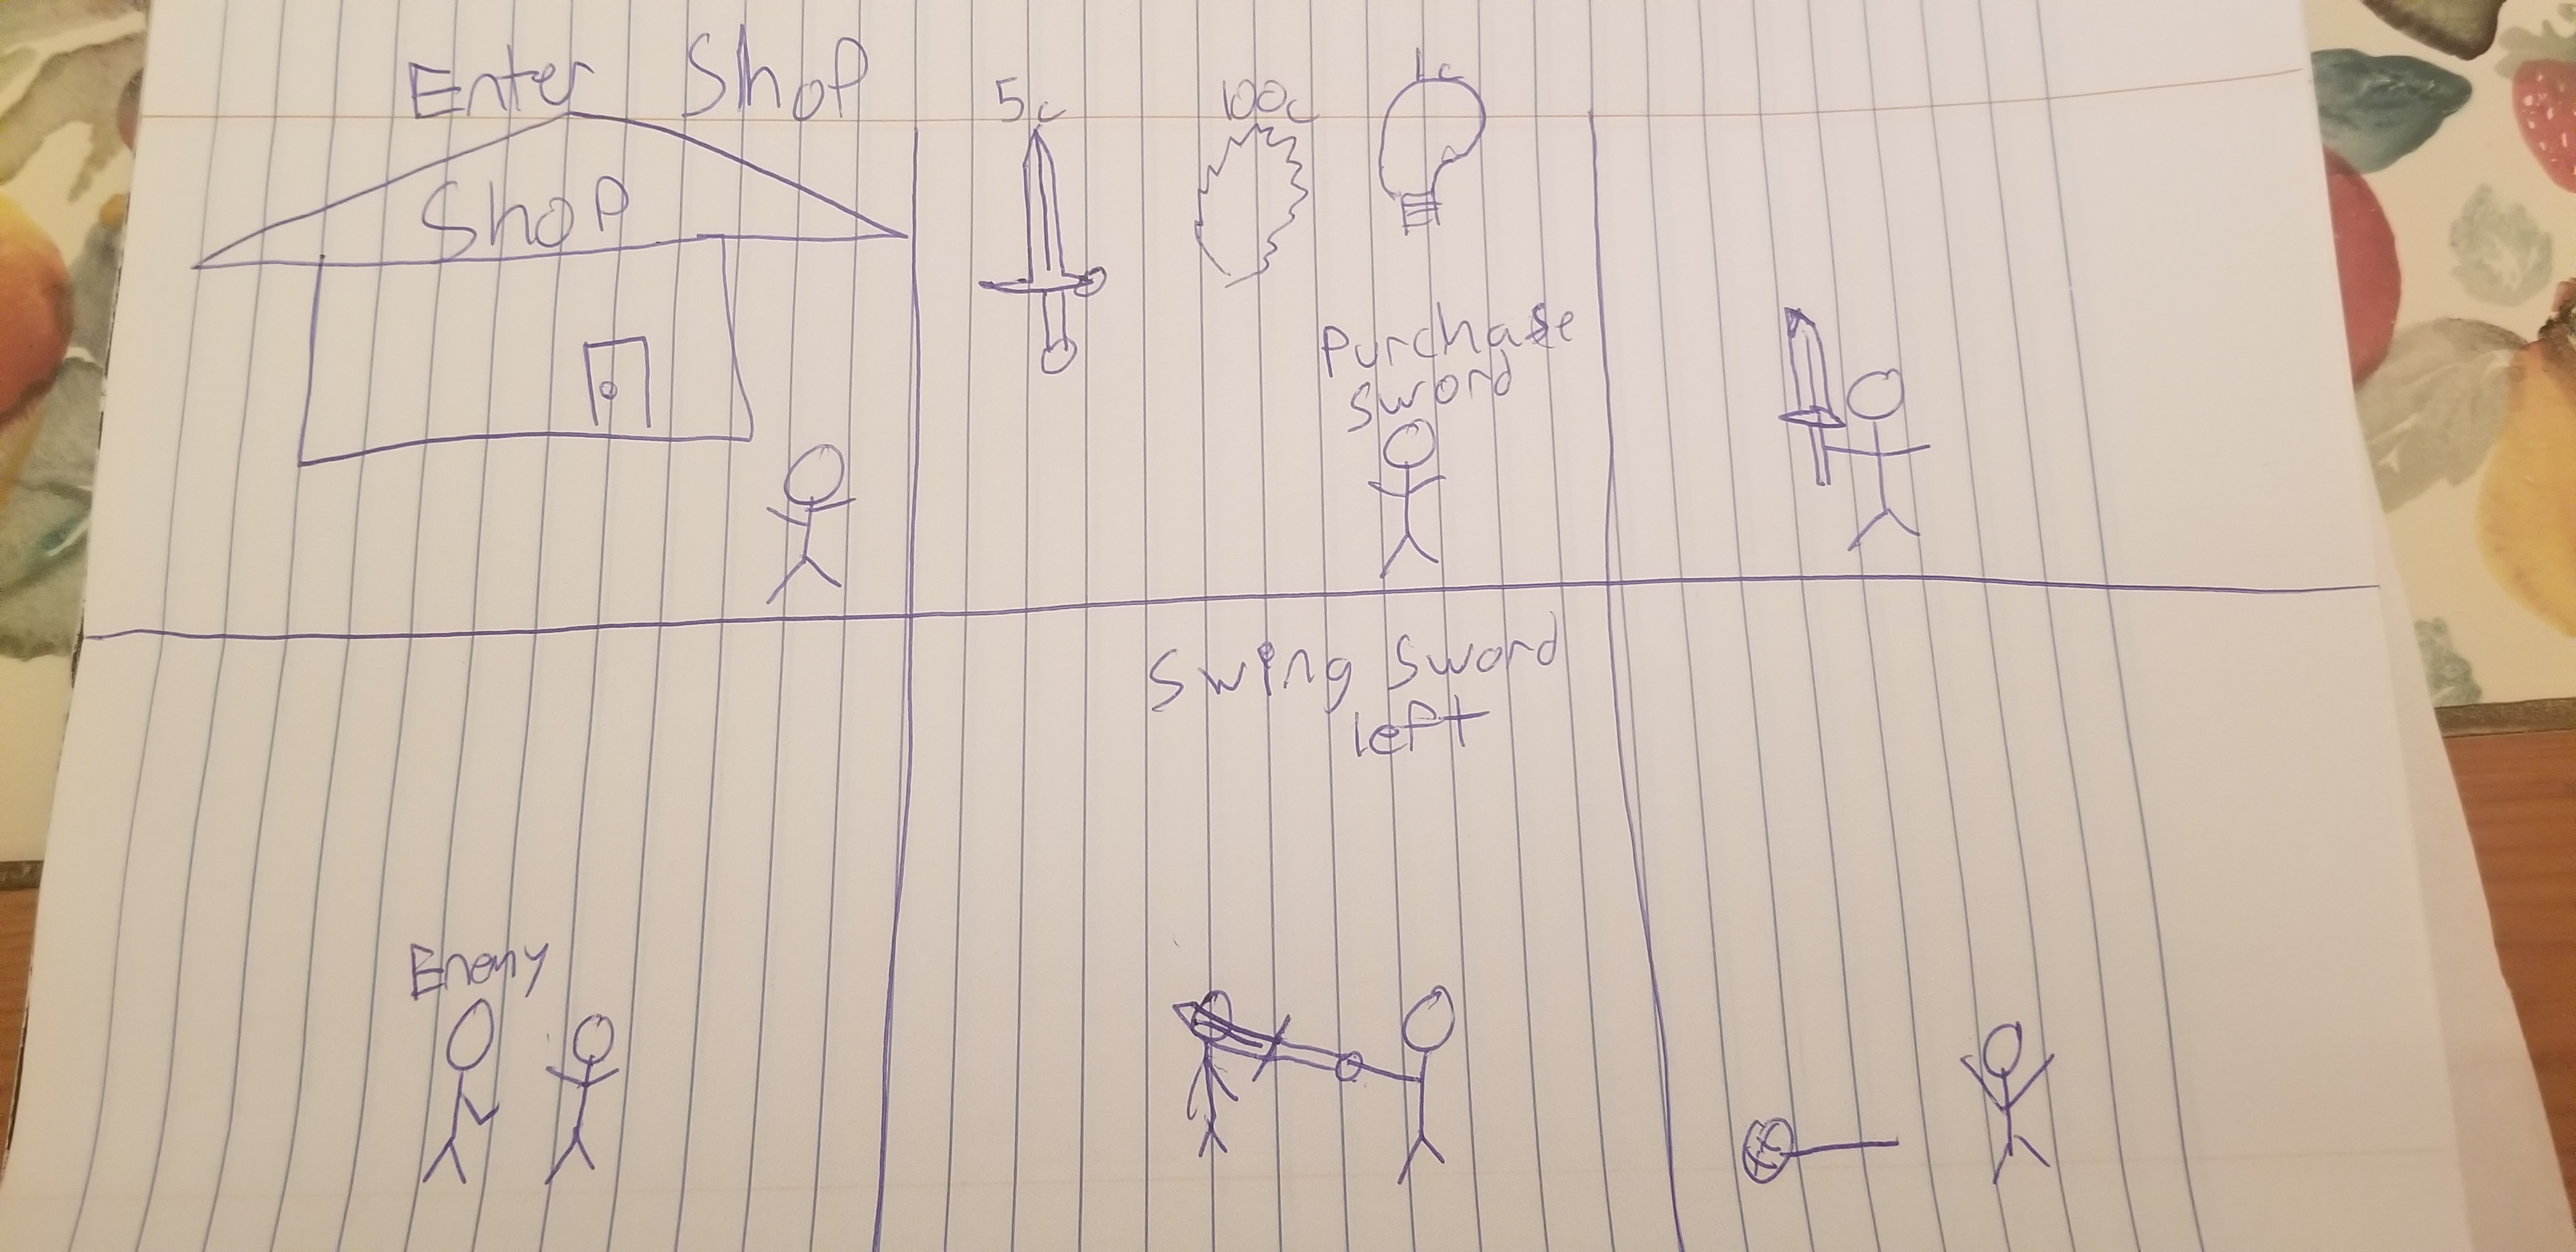 Enter Shop
Shop
5c 100c 1c
Purchase
sword
Enemy
Swing Sword
left